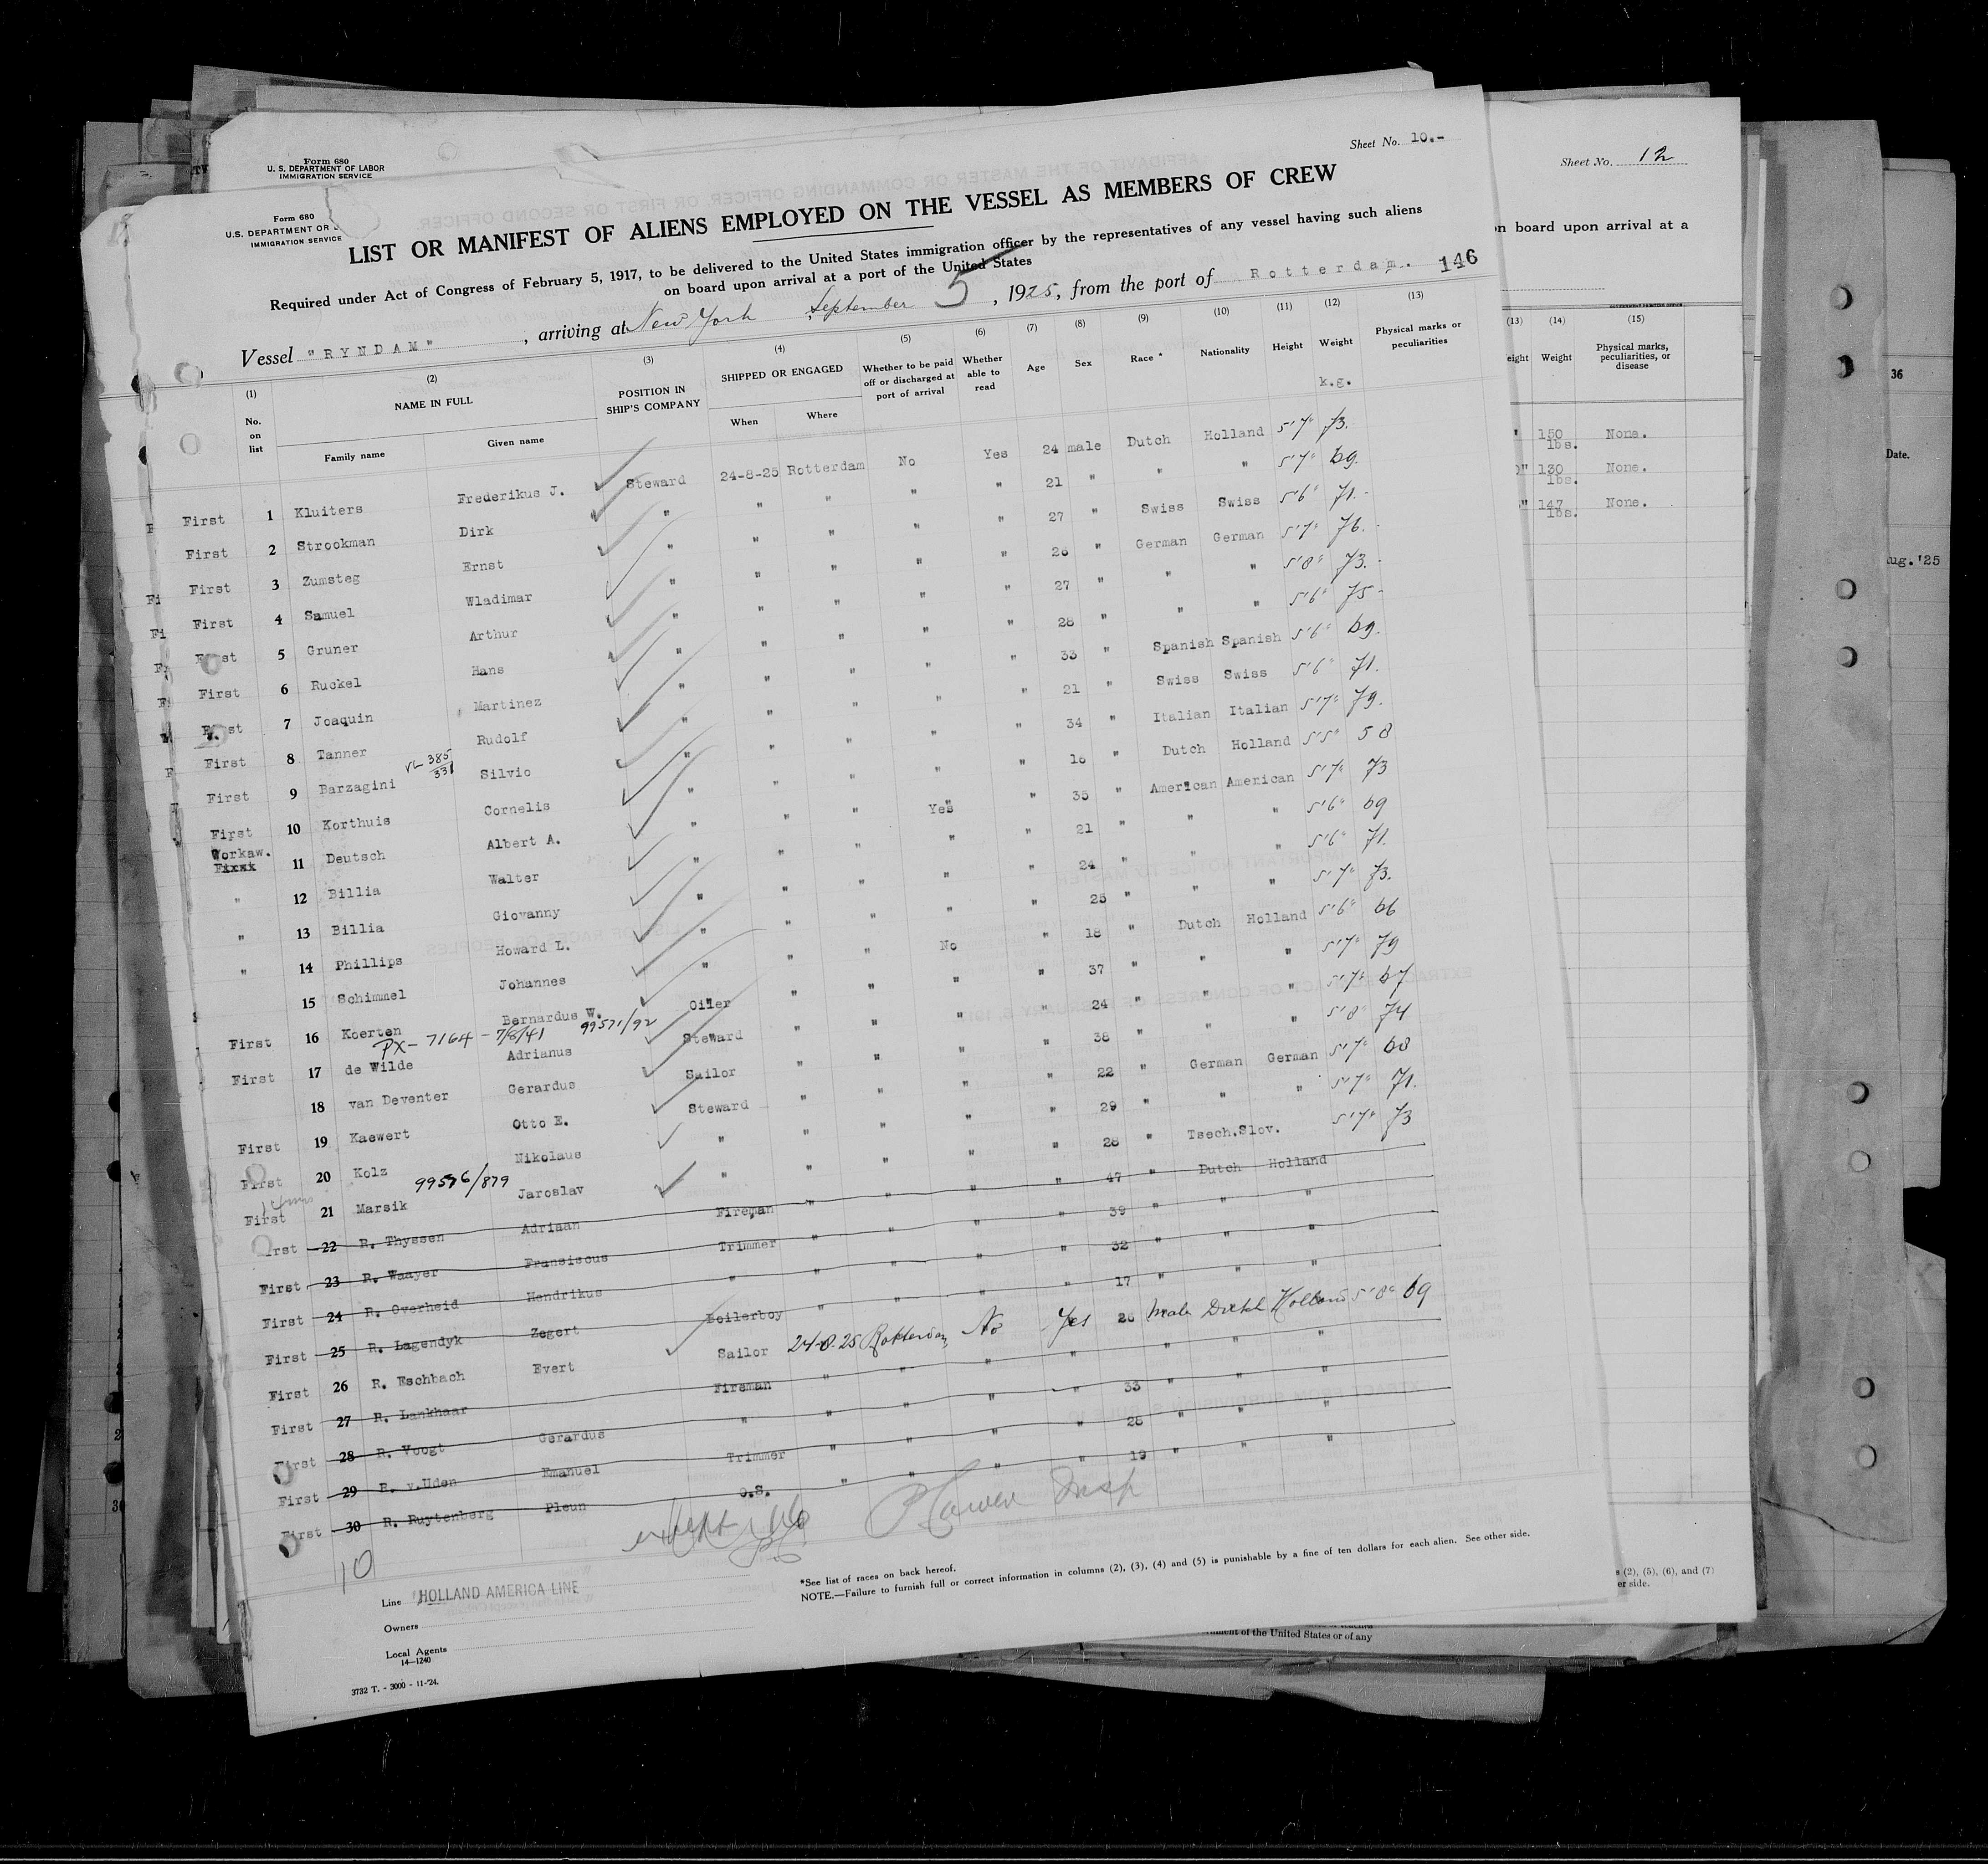 Sheet No. 12
on board upon arrival at a
(13) (14) (15)
Weight Physical marks, peculiarities, or disease
150 lbs. None.
130 lbs. None.
147 lbs. None.
36
Date.
Aug.'25
Form 680
U. S. DEPARTMENT OF LABOR
IMMIGRATION SERVICE
Form 680
U. S. DEPARTMENT OR
IMMIGRATION SERVICE
Sheet No. 10.-
LIST OR MANIFEST OF ALIENS EMPLOYED ON THE VESSEL AS MEMBERS OF CREW
Required under Act of Congress of February 5, 1917, to be delivered to the United States immigration officer by the representatives of any vessel having such aliens
on board upon arrival at a port of the United States
Vessel "RYNDAM", arriving at New York September 5, 1925, from the port of Rotterdam. 146
(1) (2) (3) (4) (5) (6) (7) (8) (9) (10) (11) (12) (13)
No. on list NAME IN FULL POSITION IN SHIP'S COMPANY SHIPPED OR ENGAGED Whether to be paid off or discharged at port of arrival Whether able to read Age Sex Race * Nationality Height Weight Physical marks or peculiarities
Family name Given name When Where k.g.
First 1 Kluiters Frederikus J. Steward 24-8-25 Rotterdam No Yes 24 male Dutch Holland 5'7" 73.
First 2 Strookman Dirk " " " " " 21 " " " 5'7" 69.
First 3 Zumsteg Ernst " " " " " 27 " Swiss Swiss 5'6" 71.-
First 4 Samuel Wladimar " " " " " 26 " German German 5'7" 76.-
First 5 Gruner Arthur " " " " " 27 " " " 5'8" 73.-
First 6 Ruckel Hans " " " " " 28 " " " 5'6" 75-
First 7 Joaquin Martinez " " " " " 33 " Spanish Spanish 5'6" 69.
First 8 Tanner Rudolf " " " " " 21 " Swiss Swiss 5'6" 71.
First 9 Barzagini Silvio " " " " " 34 " Italian Italian 5'7" 79.
First 10 Korthuis Cornelis " " " " " 16 " Dutch Holland 5'5" 58
Workaw. 11 Deutsch Albert A. " " " Yes " 35 " American American 5'7" 73
" 12 Billia Walter " " " " " 21 " " " 5'6" 69
" 13 Billia Giovanny " " " " " 24 " " " 5'6" 71.
" 14 Phillips Howard L. " " " " " 25 " " " 5'7" 73.
15 Schimmel Johannes " " " No " 18 " Dutch Holland 5'6" 66
First 16 Koerten Bernardus W. " " " " " 37 " " " 5'7" 79
PX- 7164 - 7/8/41 99571/92
First 17 de Wilde Adrianus Oiler " " " " 24 " " " 5'7" 67
18 van Deventer Gerardus Steward " " " " 38 " " " 5'8" 74
First 19 Kaewert Otto E. Sailor " " " " 22 " German German 5'7" 68
First 20 Kolz Nikolaus Steward " " " " 29 " " " 5'7" 71.
99576/879
First 21 Marsik Jaroslav " " " " " 28 " Tsech.Slov. 5'7" 73
First 22 R. Thyssen Adriaan Fireman " " " " 47 " Dutch Holland
First 23 R. Waayer Fransiscus Trimmer " " " " 39 " " "
First 24 R. Overheid Hendrikus " " " " " 32 " " "
First 25 R. Lagendyk Zegert Boilerboy " " " " 17 " " "
First 26 R. Eschbach Evert Sailor 24-8-25 Rotterdam No Yes 26 Male Dutch Holland 5'8" 69
First 27 R. Lankhaar Fireman " " " " " " "
First 28 R. Voogt Gerardus " " " " " 33 " " "
First 29 R. v.Uden Emanuel Trimmer " " " " 28 " " "
First 30 R. Ruytenberg Pleun O.S. " " " " 19 " " "
10
Line HOLLAND AMERICA LINE
Owners
Local Agents
14—1240
3732 T. - 3000 - 11-'24.
*See list of races on back hereof.
NOTE.—Failure to furnish full or correct information in columns (2), (3), (4) and (5) is punishable by a fine of ten dollars for each alien. See other side.
(2), (5), (6), and (7)
er side.
of the United States or of any